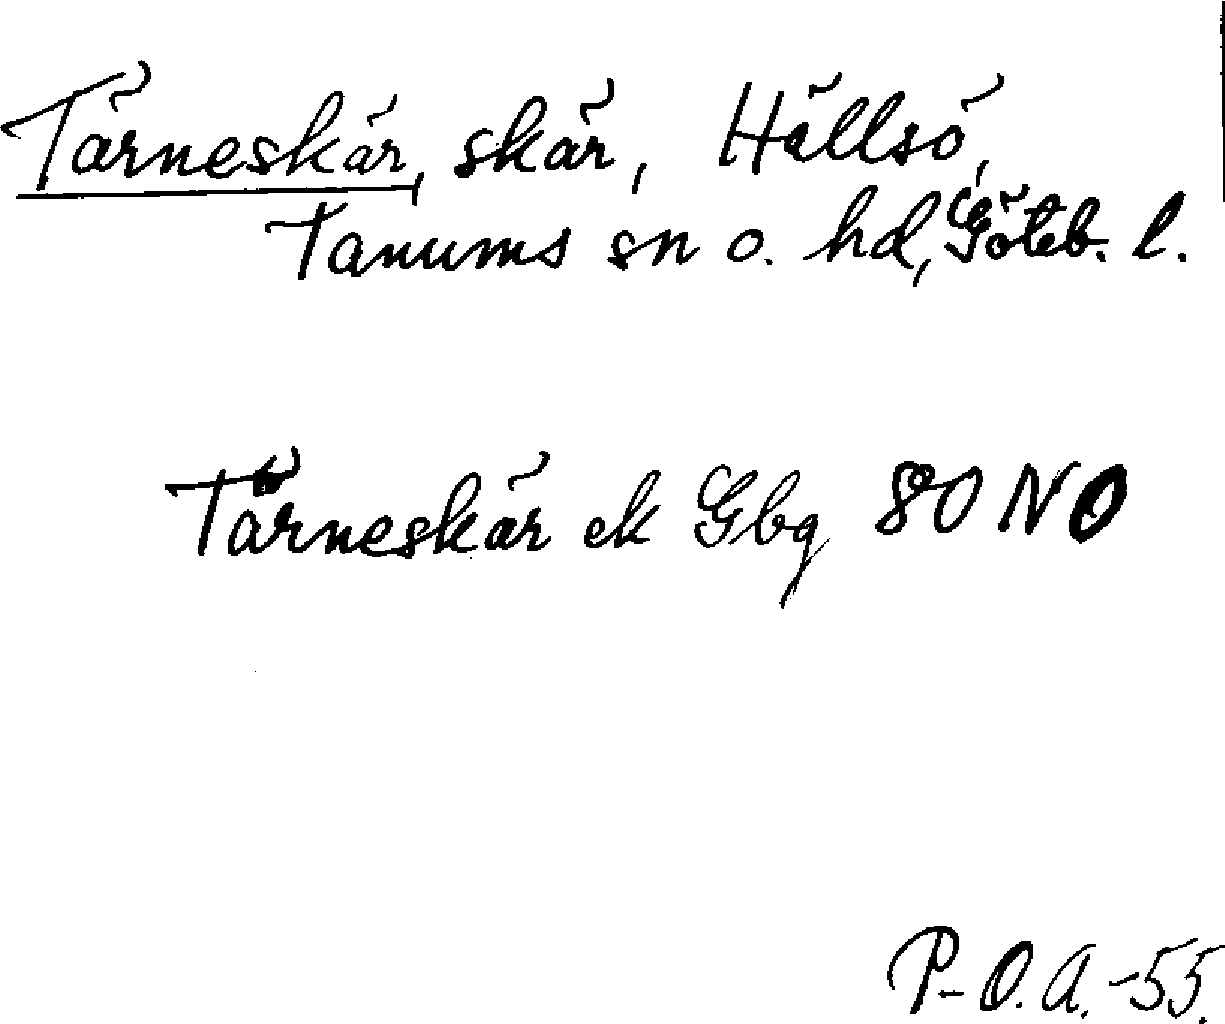 Tärneskär, skär, Hällsö,
Tanums sn o. hd, Göteb. l.
Tärneskär ek Gbg 80 NO
P-O.A.-55.